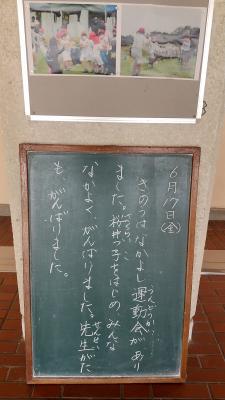 6月17日(金)
きのうはなかよし運動会があり
ました。桜井っ子をはじめ みんな
なかよく、がんばりました。先生がた
も、がんばりました。